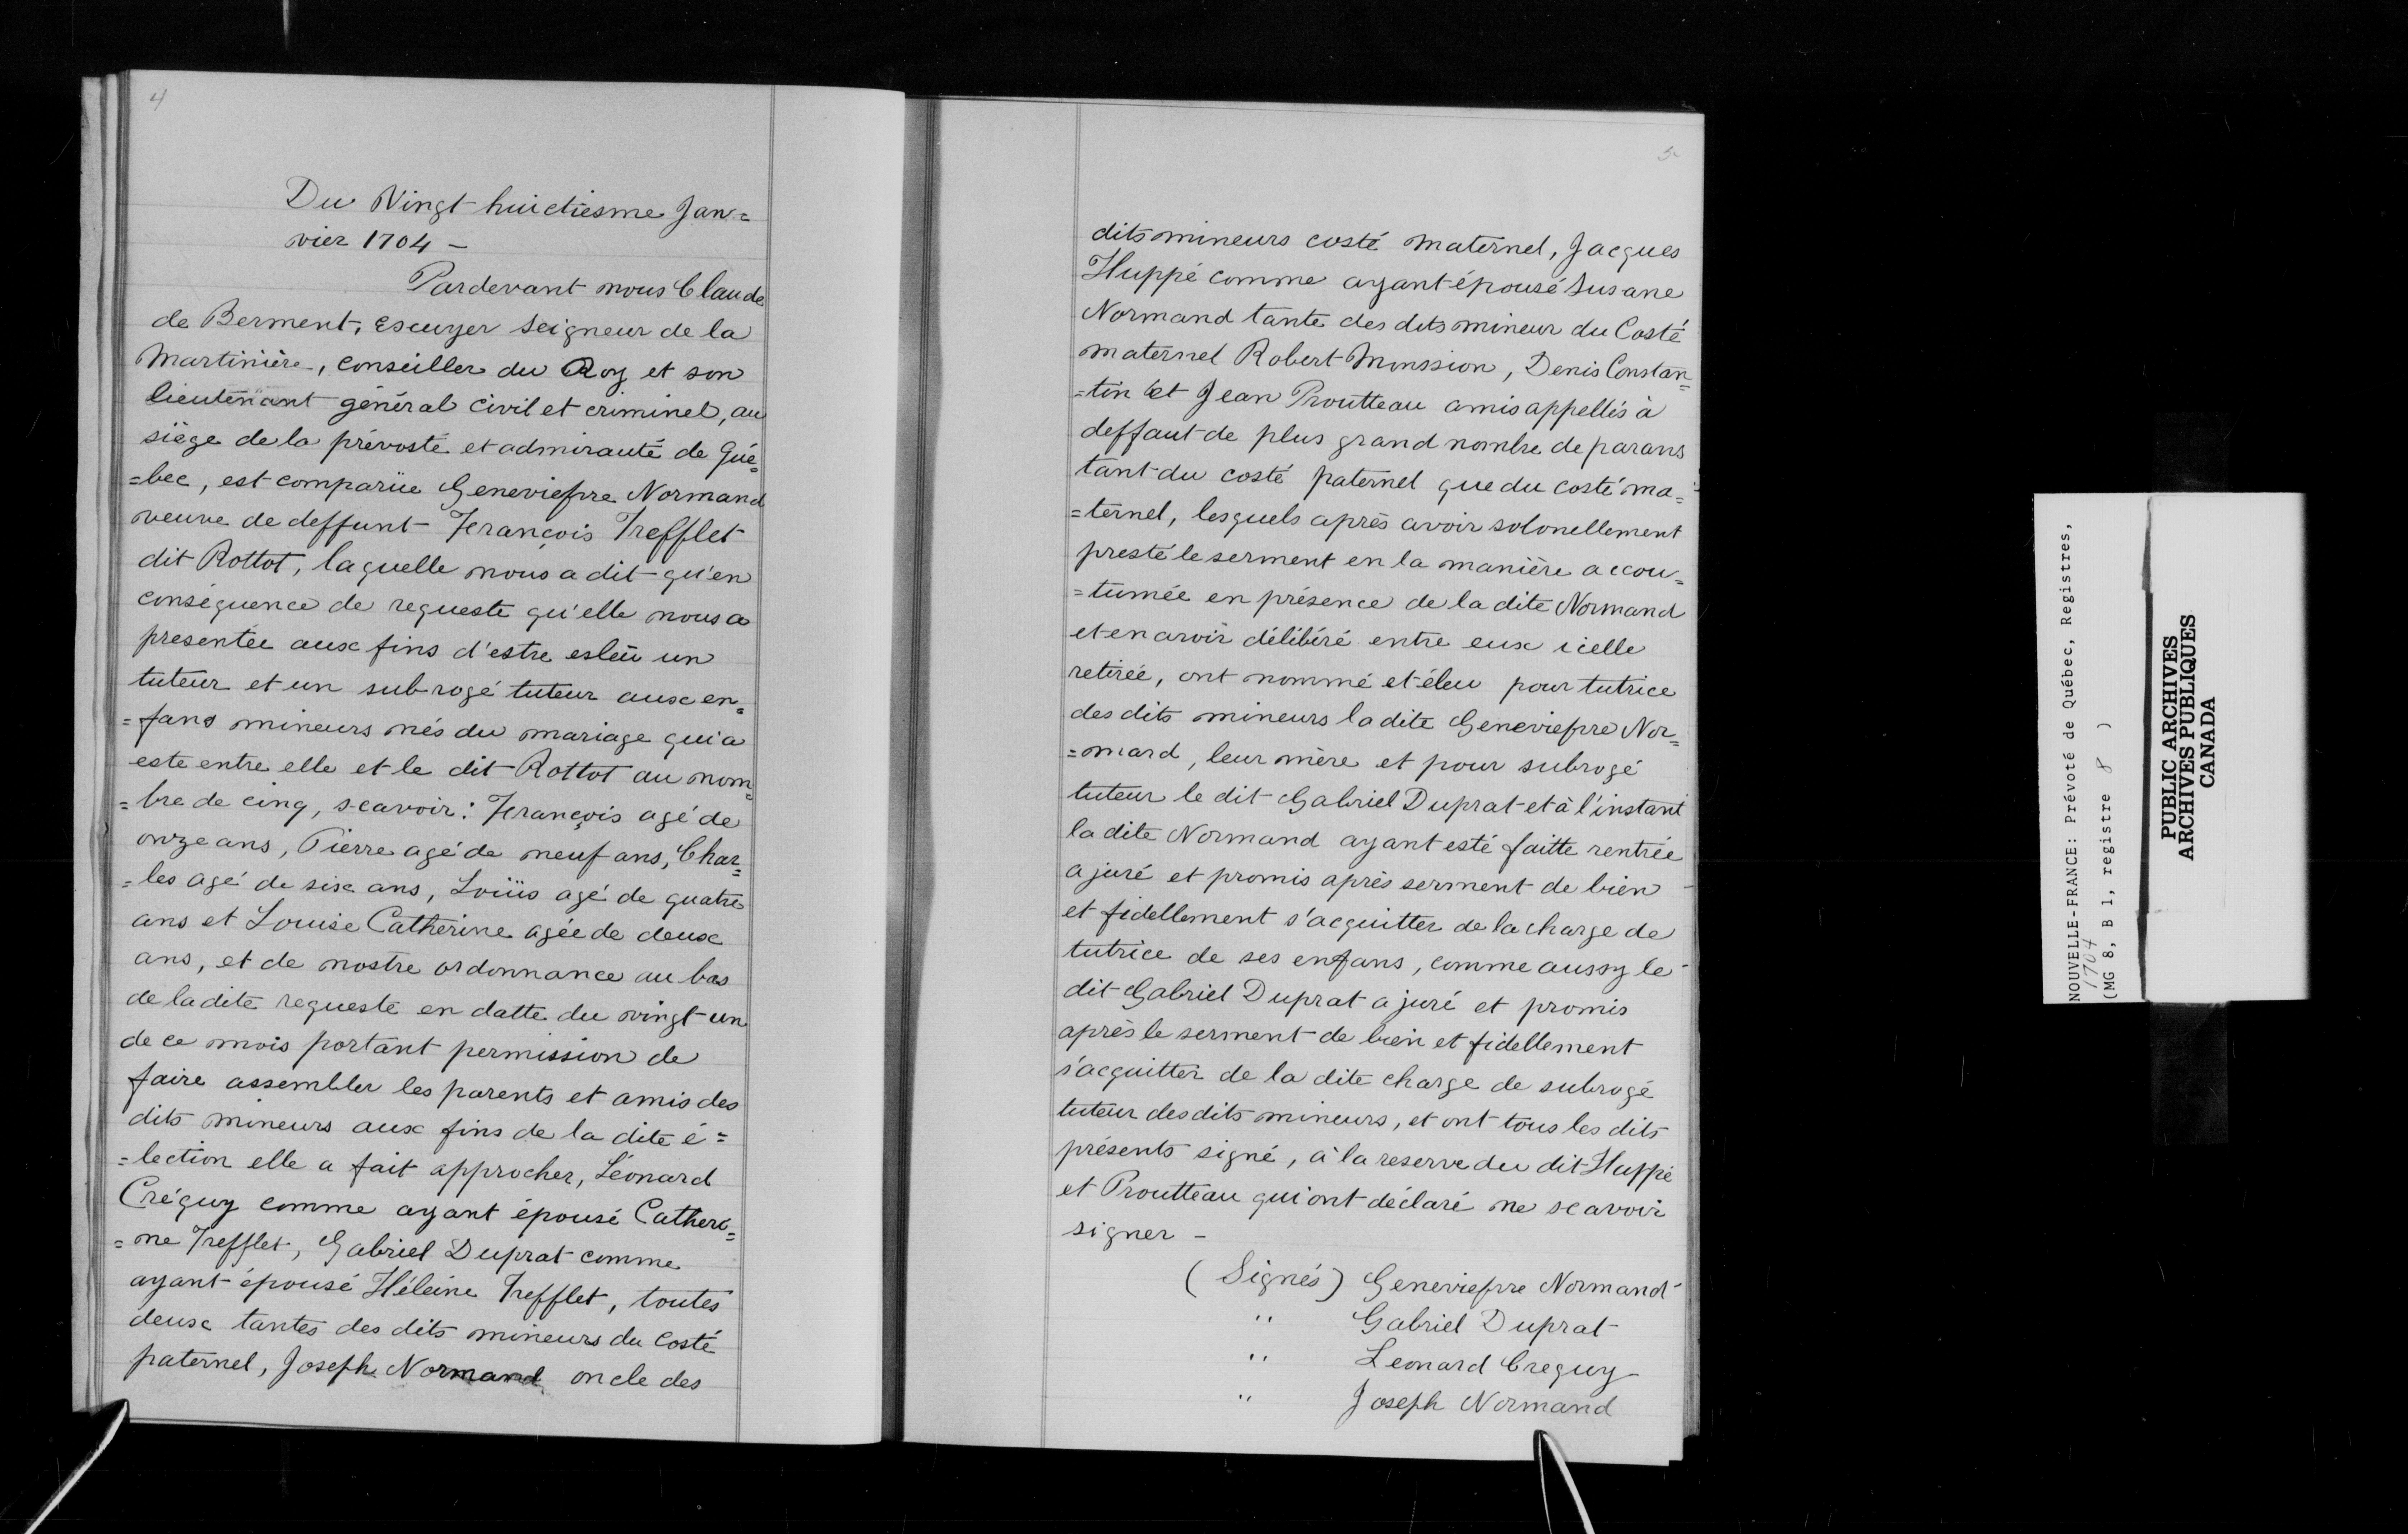 4
Du Vingt huictiesme Jan=
vier 1704 -
Pardevant nous Claude
de Berment, escuyer seigneur de la
Martinière, conseiller du Roy et son
lieutenant général civil et criminel, au
siège de la prévosté et admirauté de Qué=
=bec, est comparüe Geneviefve Normand
veuve de deffunt François Trefflet
dit Rottot, laquelle nous a dit qu'en
conséquence de requeste qu'elle nous a
presentée aux fins d'estre esleü un
tuteur et un subrogé tuteur aux en=
=fans mineurs nés du mariage qui a
esté entre elle et le dit Rottot au nom=
=bre de cinq, scavoir: François agé de
onze ans, Pierre agé de neuf ans, Char=
=les agé de six ans, Loüis agé de quatre
ans et Louise Catherine agée de deux
ans, et de nostre ordonnance au bas
de la dite requeste en datte du vingt un
de ce mois portant permission de
faire assembler les parents et amis des
dits mineurs aux fins de la dite é=
=lection elle a fait approcher, Léonard
Créquy comme ayant épousé Catheri=
=ne Trefflet, Gabriel Duprat comme
ayant épousé Héleine Trefflet, toutes
deux tantes des dits mineurs du costé
paternel, Joseph Normand oncle des
5
dits mineurs costé maternel, Jacques
Huppé comme ayant épousé Susane
Normand tante des dits mineur du Costé
maternel Robert Monssion, Denis Constan=
=tin et Jean Proutteau amis appellés à
deffaut de plus grand nombre de parans
tant du costé paternel que du costé ma=
=ternel, lesquels après avoir solonellement
presté le serment en la manière accou=
=tumée en présence de la dite Normand
et en avoir délibéré entre eux icelle
retirée, ont nommé et éleu pour tutrice
des dits mineurs la dite Geneviefve Nor=
=mard, leur mère et pour subrogé
tuteur le dit Gabriel Duprat et à l'instant
la dite Normand ayant esté faitte rentrée
a juré et promis après serment de bien
et fidellement s'acquitter de la charge de
tutrice de ses enfans, comme aussy le
dit Gabriel Duprat a juré et promis
après le serment de bien et fidellement
s'acquitter de la dite charge de subrogé
tuteur des dits mineurs, et ont tous les dits
présents signé, à la reserve du dit Huppé
et Proutteau qui ont déclaré ne scavoir
signer -
(Signés) Geneviefve Normand
" Gabriel Duprat
" Leonard Crequy
" Joseph Normand
NOUVELLE-FRANCE: Prévoté de Québec, Registres,
1704
(MG 8, B 1, registre 8 )
PUBLIC ARCHIVES
ARCHIVES PUBLIQUES
CANADA